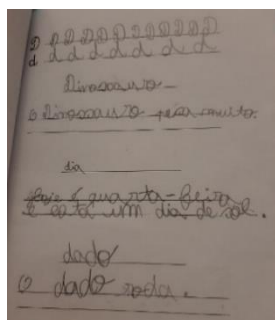 D D D D D D D D D D
d d d d d d d d d
Dinossauro
O Dinossauro pesa muito.
dia
Hoje é quarta-feira
e está um dia de sol.
dado
O dado roda.